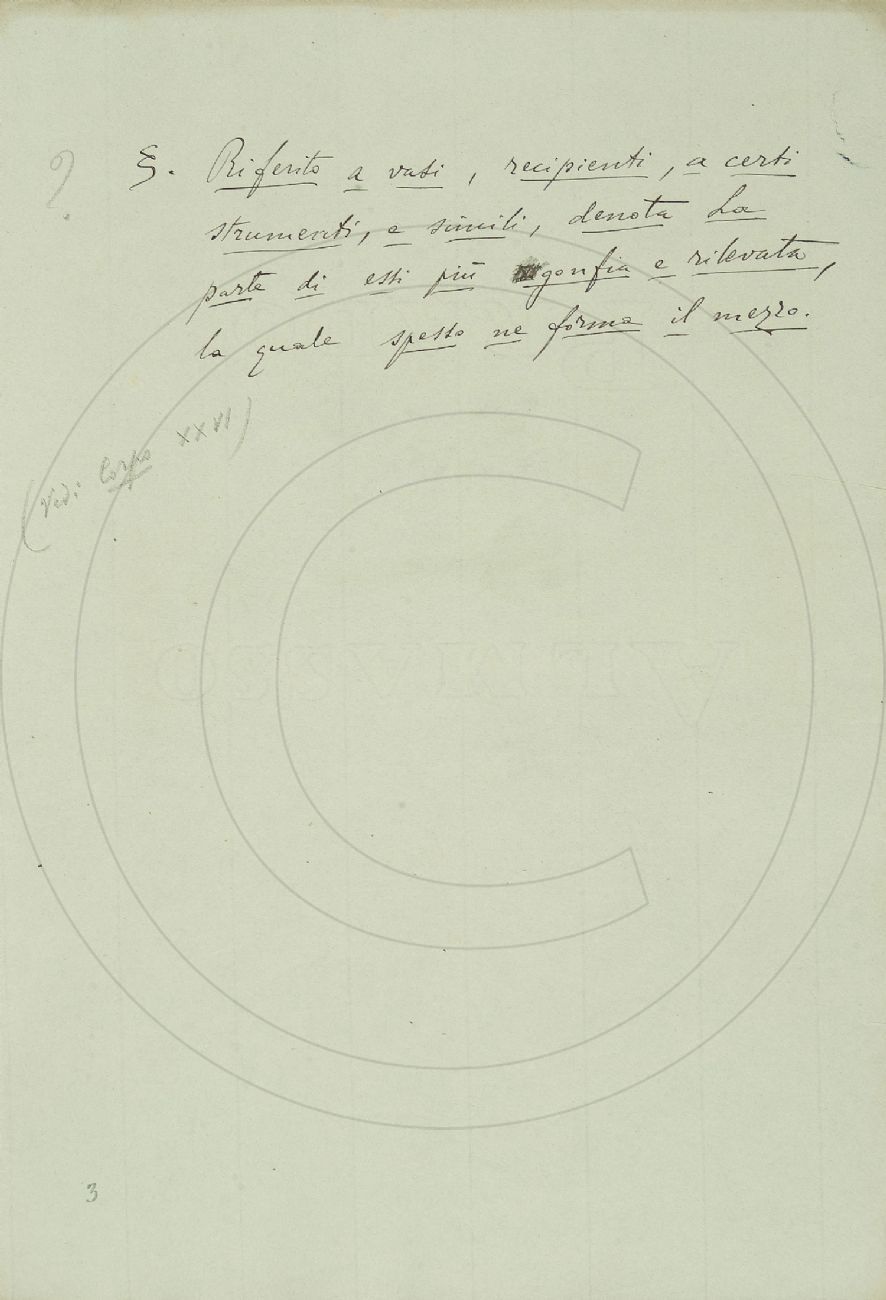 ? §. Riferito a vasi, recipienti, a certi
strumenti, e simili, denota La
parte di essi più gonfia e rilevata,
la quale spesso ne forma il mezzo.
(Vedi Corpo XXVI)
3